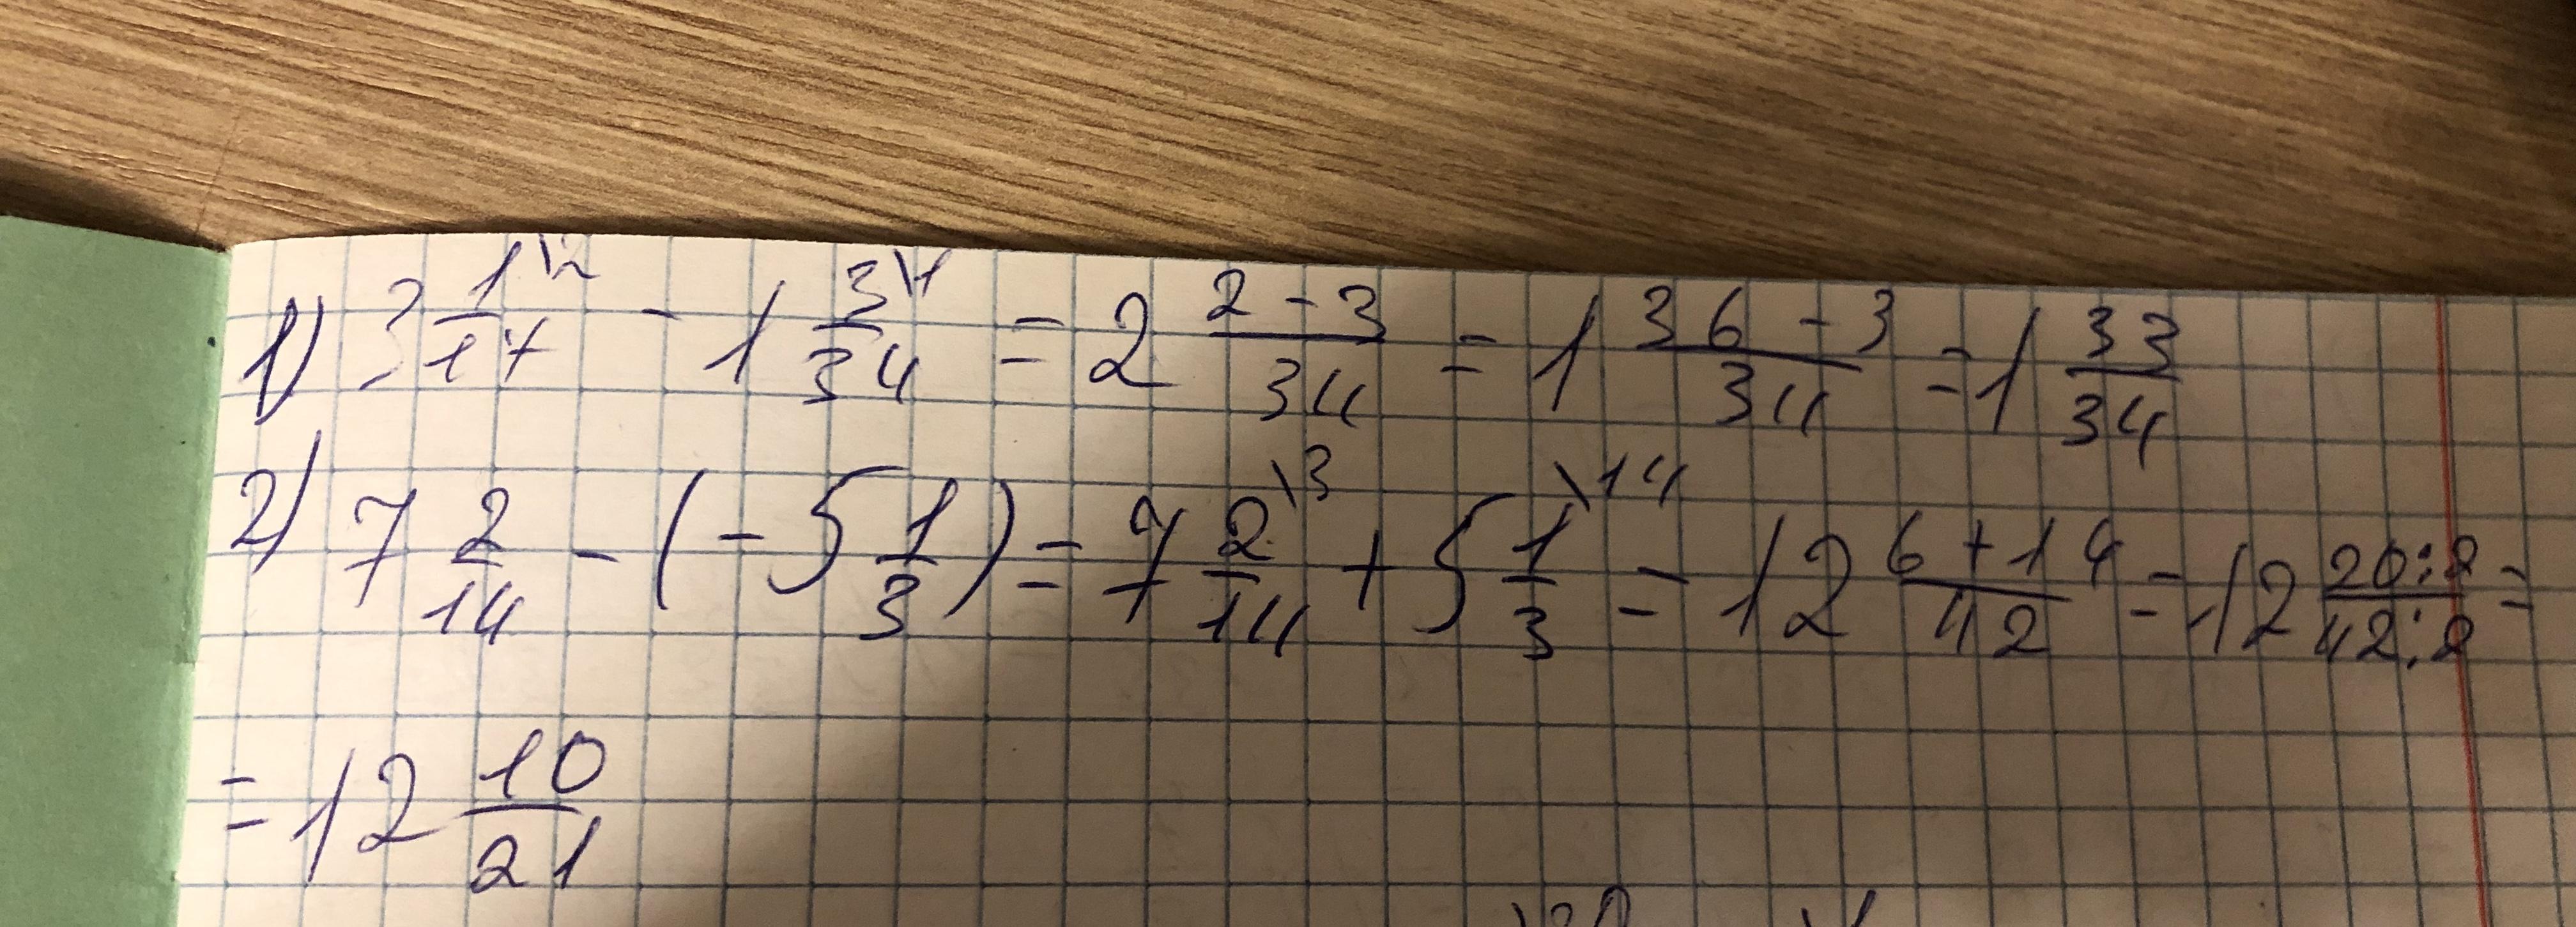 1) 3 1\2/17 - 1 3\1/34 = 2 2-3/34 = 1 36-3/34 = 1 33/34
2) 7 2/14 - (-5 1/3) = 7 2\3/14 + 5 1\14/3 = 12 6+14/42 = 12 20:2/42:2 =
= 12 10/21